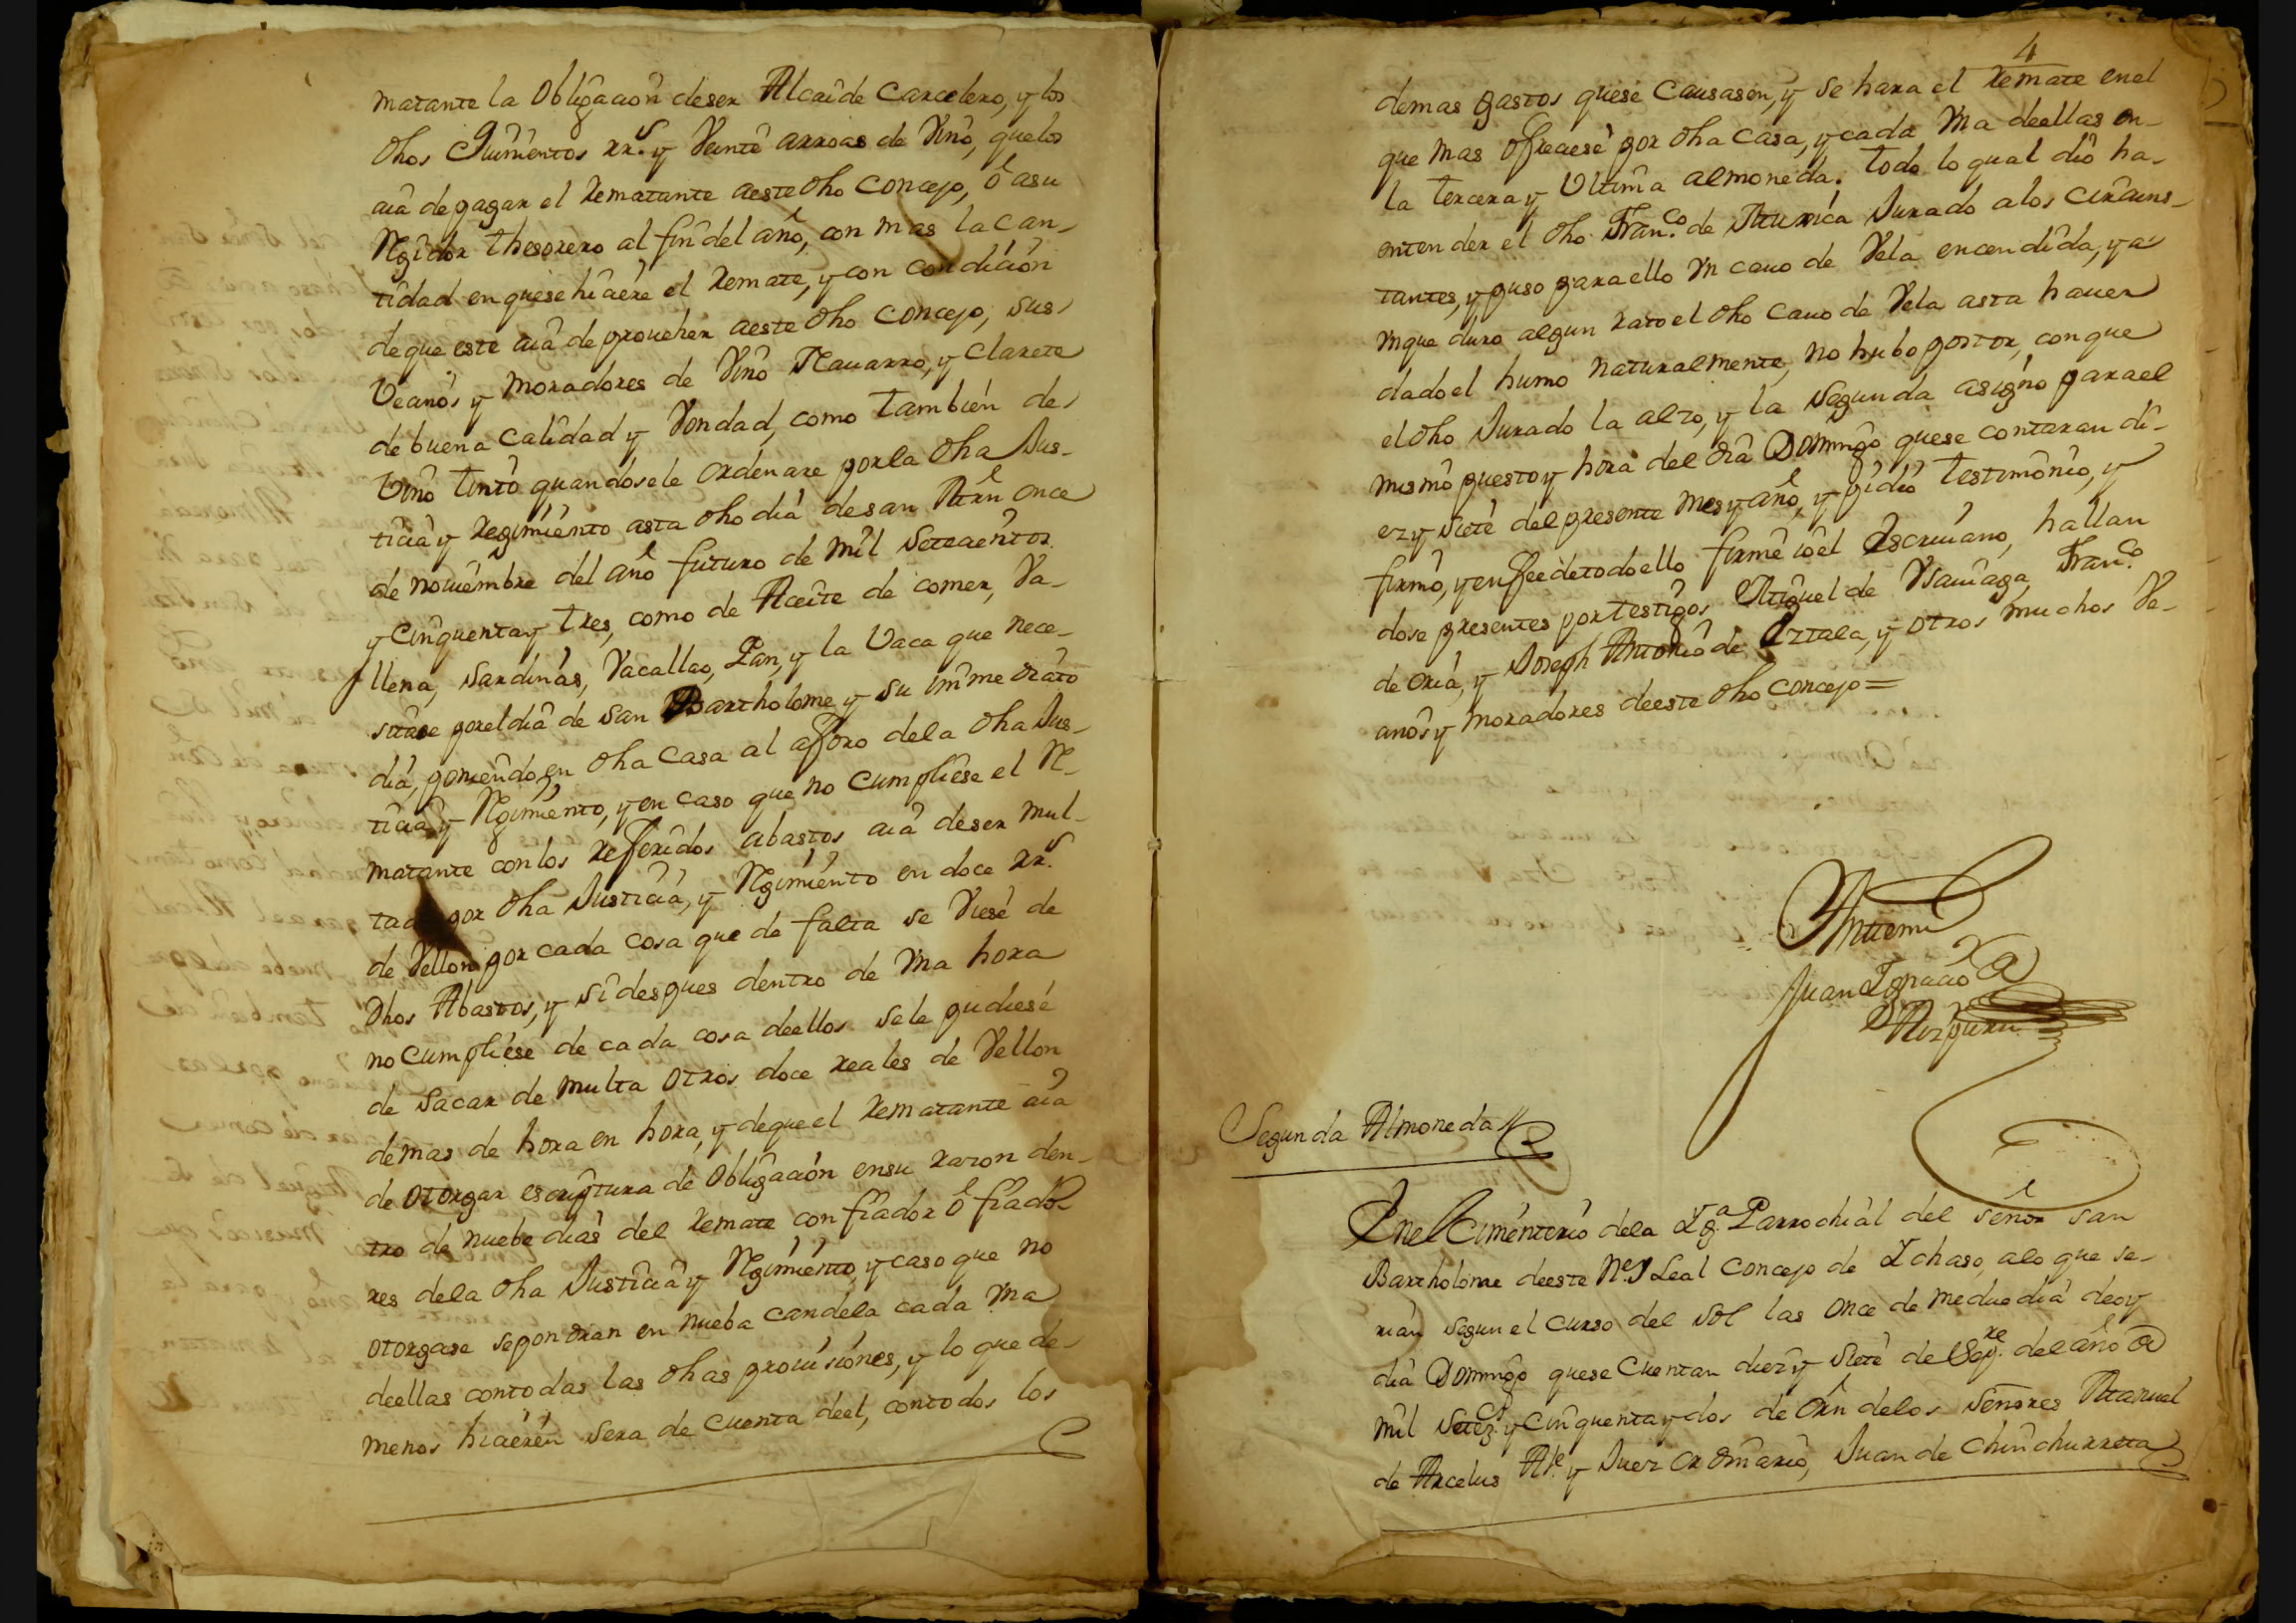 matante la Obligacion deser Alcaide Carcelero, y los
dhos Quinientos rr.s y Veinte arroas de Vino, quelos
aia de pagar el Rematante aeste dho Concejo, ô asu
Rgidor thesorero al fin del año, con mas la can-
tidad en quese hiciere el Remate, y con condicion
deque este aia de proueher aeste dho Concejo, sus
Vecinos y moradores de Vino Nauarro, y Clarete
de buena Calidad y Vondad, como tambien de
Vino tinto quandosele Ordenare porla dha Jus-
ticia y Regimiento asta dho dia desan Mrn once
de nouiembre del año futuro de mil Setecientos
y Cinquenta y tres, como de Aceite de comer, Va-
llena, Sardinas, Vacallao, Pan, y la Vaca que nece-
sitare porel dia de San Bartholome y su inmediato
dia, poniendo en dha Casa al aforo dela dha Jus-
ticia y Rgimiento, y en caso que no Cumpliese el R-
matante con los referidos abastos aia deser mul-
tado por dha Justicia, y Rgimiento en doce rr.s
de Vellon por cada cosa que de falta se Viese de
dhos Abastos, y si despues dentro de Vna hora
no Cumpliese de cada cosa deellos sele pudiese
de Sacar de multa otros doce reales de Vellon
demas de hora en hora, y deque el Rematante aia
de otorgar escriptura de Obligacion ensu razon den-
tro de nuebe dias del Remate con fiador ô fiado-
res dela dha Justicia y Rgimiento, y caso que no
otorgase se pondran en nueba candela cada Vna
deellas contodas las dhas prouisiones, y lo que de
menos hicieren sera de Cuenta deel, contodos los
4
demas gastos quese Causasen, y se hara el Remate enel
que mas Ofreciese por dha Casa, y cada Vna deellas en
la tercera y Vltima almoneda. todo lo qual dio ha-
entender el dho Fran.co de Jurado alos Circuns-
tantes, y puso para ello Vn cauo de Vela encendida, y a-
unque duro algun rato el dho Cauo de Vela asta hauer
dado el humo naturalmente, no hubo postor, con que
el dho Jurado la alzo, y la Segunda asigno para el
mismo puesto y hora del dia Domingo quese contaran di-
ez y siete del presente mes y año, y pidio testimonio, y
firmô, y en fee de todo ello firmê io el Escriuano, hallan
dose presentes por testigos Miguel de Vsauiaga, Fran.co
de Oria, y Joseph Antonio de Iztala, y otros muchos Ve-
cinos y moradores deeste dho Concejo =
Antemi
Juan Ignacio
Segunda Almoneda
Enel Cimenterio dela Yg.a Parrochial del señor san
Bartholome deeste N. y Leal Concejo de Ichaso, alo que se-
rian segun el curso del Sol las once de mediodia deoy
dia Domingo quese Cuentan diez y siete de Sep.re del año de
mil Setez.s y Cinquenta y dos de Orn delos Señores Manuel
de Arcelus Al.e y Juez Ordinario, Juan de Chinchurreta